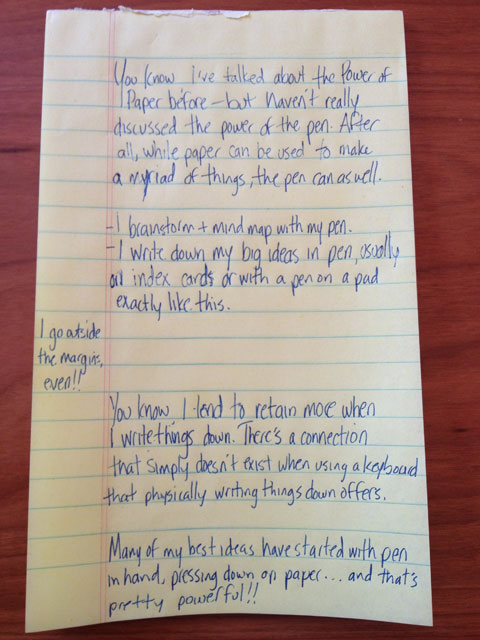 You know I've talked about the Power of
Paper before - but haven't really
discussed the power of the pen. After
all, while paper can be used to make
a myriad of things, the pen can as well.
- I brainstorm + mind map with my pen.
- I write down my big ideas in pen, usually
on index cards or with a pen on a pad
exactly like this.
I go outside
the margins,
even!!
You know I tend to retain more when
I write things down. There's a connection
that simply doesn't exist when using a keyboard
that physically writing things down offers.
Many of my best ideas have started with pen
in hand, pressing down on paper... and that's
pretty powerful!!